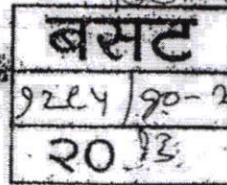 बसट
१२८५/१०-२
२० १३